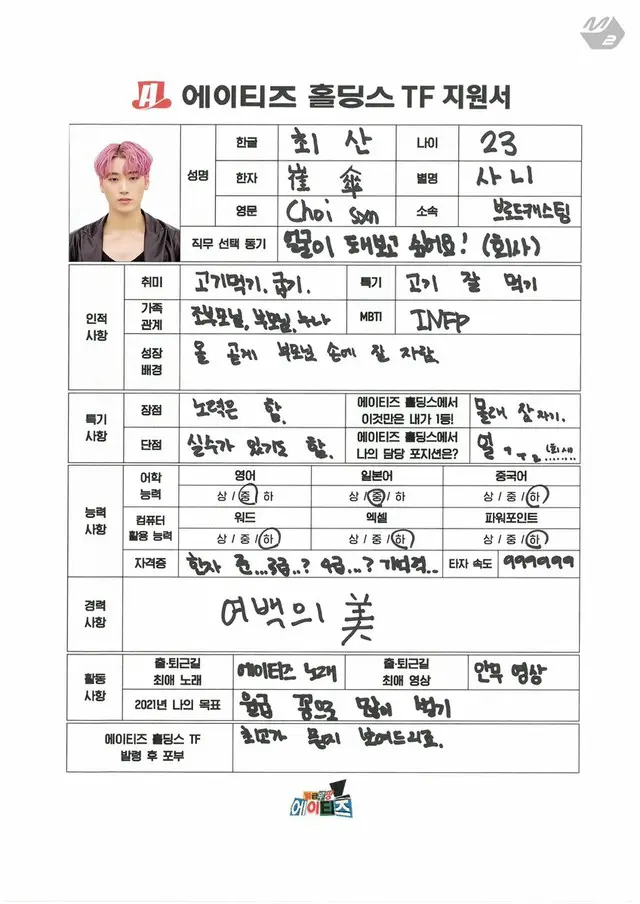 M2
A 에이티즈 홀딩스 TF 지원서
성명 한글 최 산 나이 23
한자 崔 傘 별명 사니
영문 Choi san 소속 브로드캐스팅
직무 선택 동기 얼굴이 돼보고 싶어요! (회사)
인적 사항 취미 고기먹기. 굽기. 특기 고기 잘 먹기
가족 관계 조부모님, 부모님, 누나 MBTI INFP
성장 배경 올 곧게 부모님 손에 잘 자람.
특기 사항 장점 노력은 함. 에이티즈 홀딩스에서 이것만은 내가 1등! 몰래 잠자기.
단점 실수가 있기도 함. 에이티즈 홀딩스에서 나의 담당 포지션은? 얼
능력 사항 어학 능력 영어 일본어 중국어
상 / 중 / 하 상 / 중 / 하 상 / 중 / 하
컴퓨터 활용 능력 워드 엑셀 파워포인트
상 / 중 / 하 상 / 중 / 하 상 / 중 / 하
자격증 한자 준...3급..? 4급...? 기억력.. 타자 속도 999999
경력 사항 여백의 美
활동 사항 출·퇴근길 최애 노래 에이티즈 노래 출·퇴근길 최애 영상 안무 영상
2021년 나의 목표 월급 꽁으로 많이 벌기
에이티즈 홀딩스 TF 발령 후 포부 최고가 뭔지 보여드리죠.
에이티즈